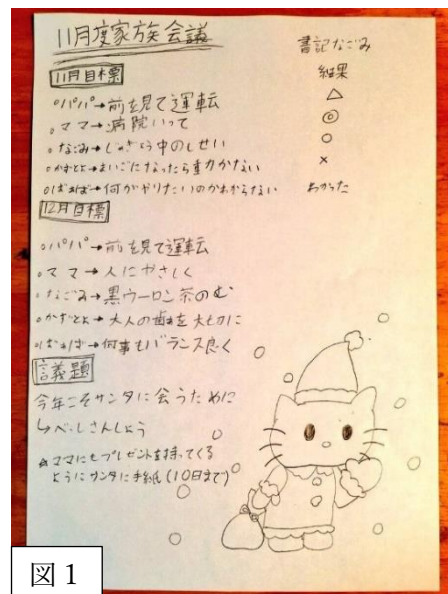 11月度家族会議
書記なごみ
11月目標
結果
○パパ→前を見て運転 △
○ママ→病院いって ◎
○なごみ→じゅぎょう中のしせい ○
○かずとよ→まいごになったら動かない ×
○ばぁば→何がやりたいのかわからない わかった
12月目標
○パパ→前を見て運転
○ママ→人にやさしく
○なごみ→黒ウーロン茶のむ
○かずとよ→大人の歯を大切に
○ばぁば→何事もバランス良く
議題
今年こそサンタに会うために
↳べっしさんしょう
☆ママにもプレゼントを持ってくる
ようにサンタに手紙(10日まで)
図1